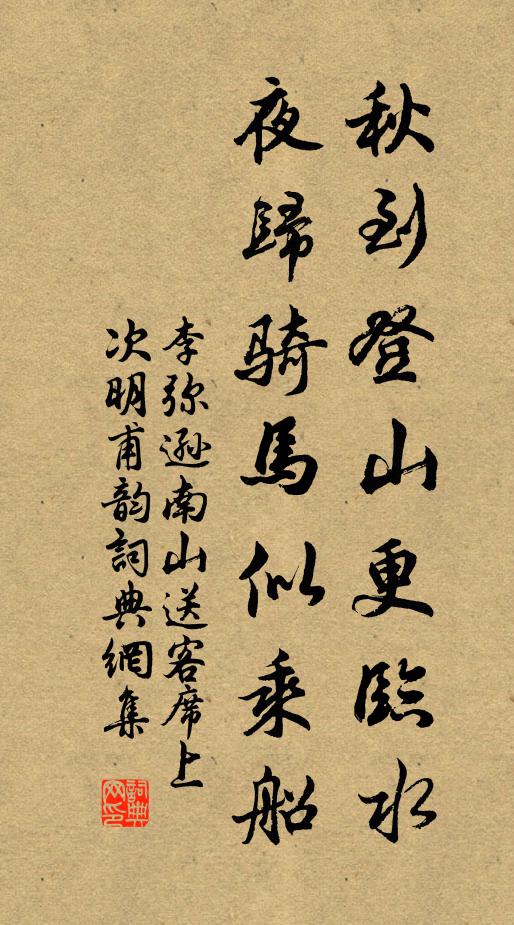 秋到登山更臨水
夜歸騎馬似乘船
李弥遜南山送客席上
次明甫韵詞典網集
詞典網印